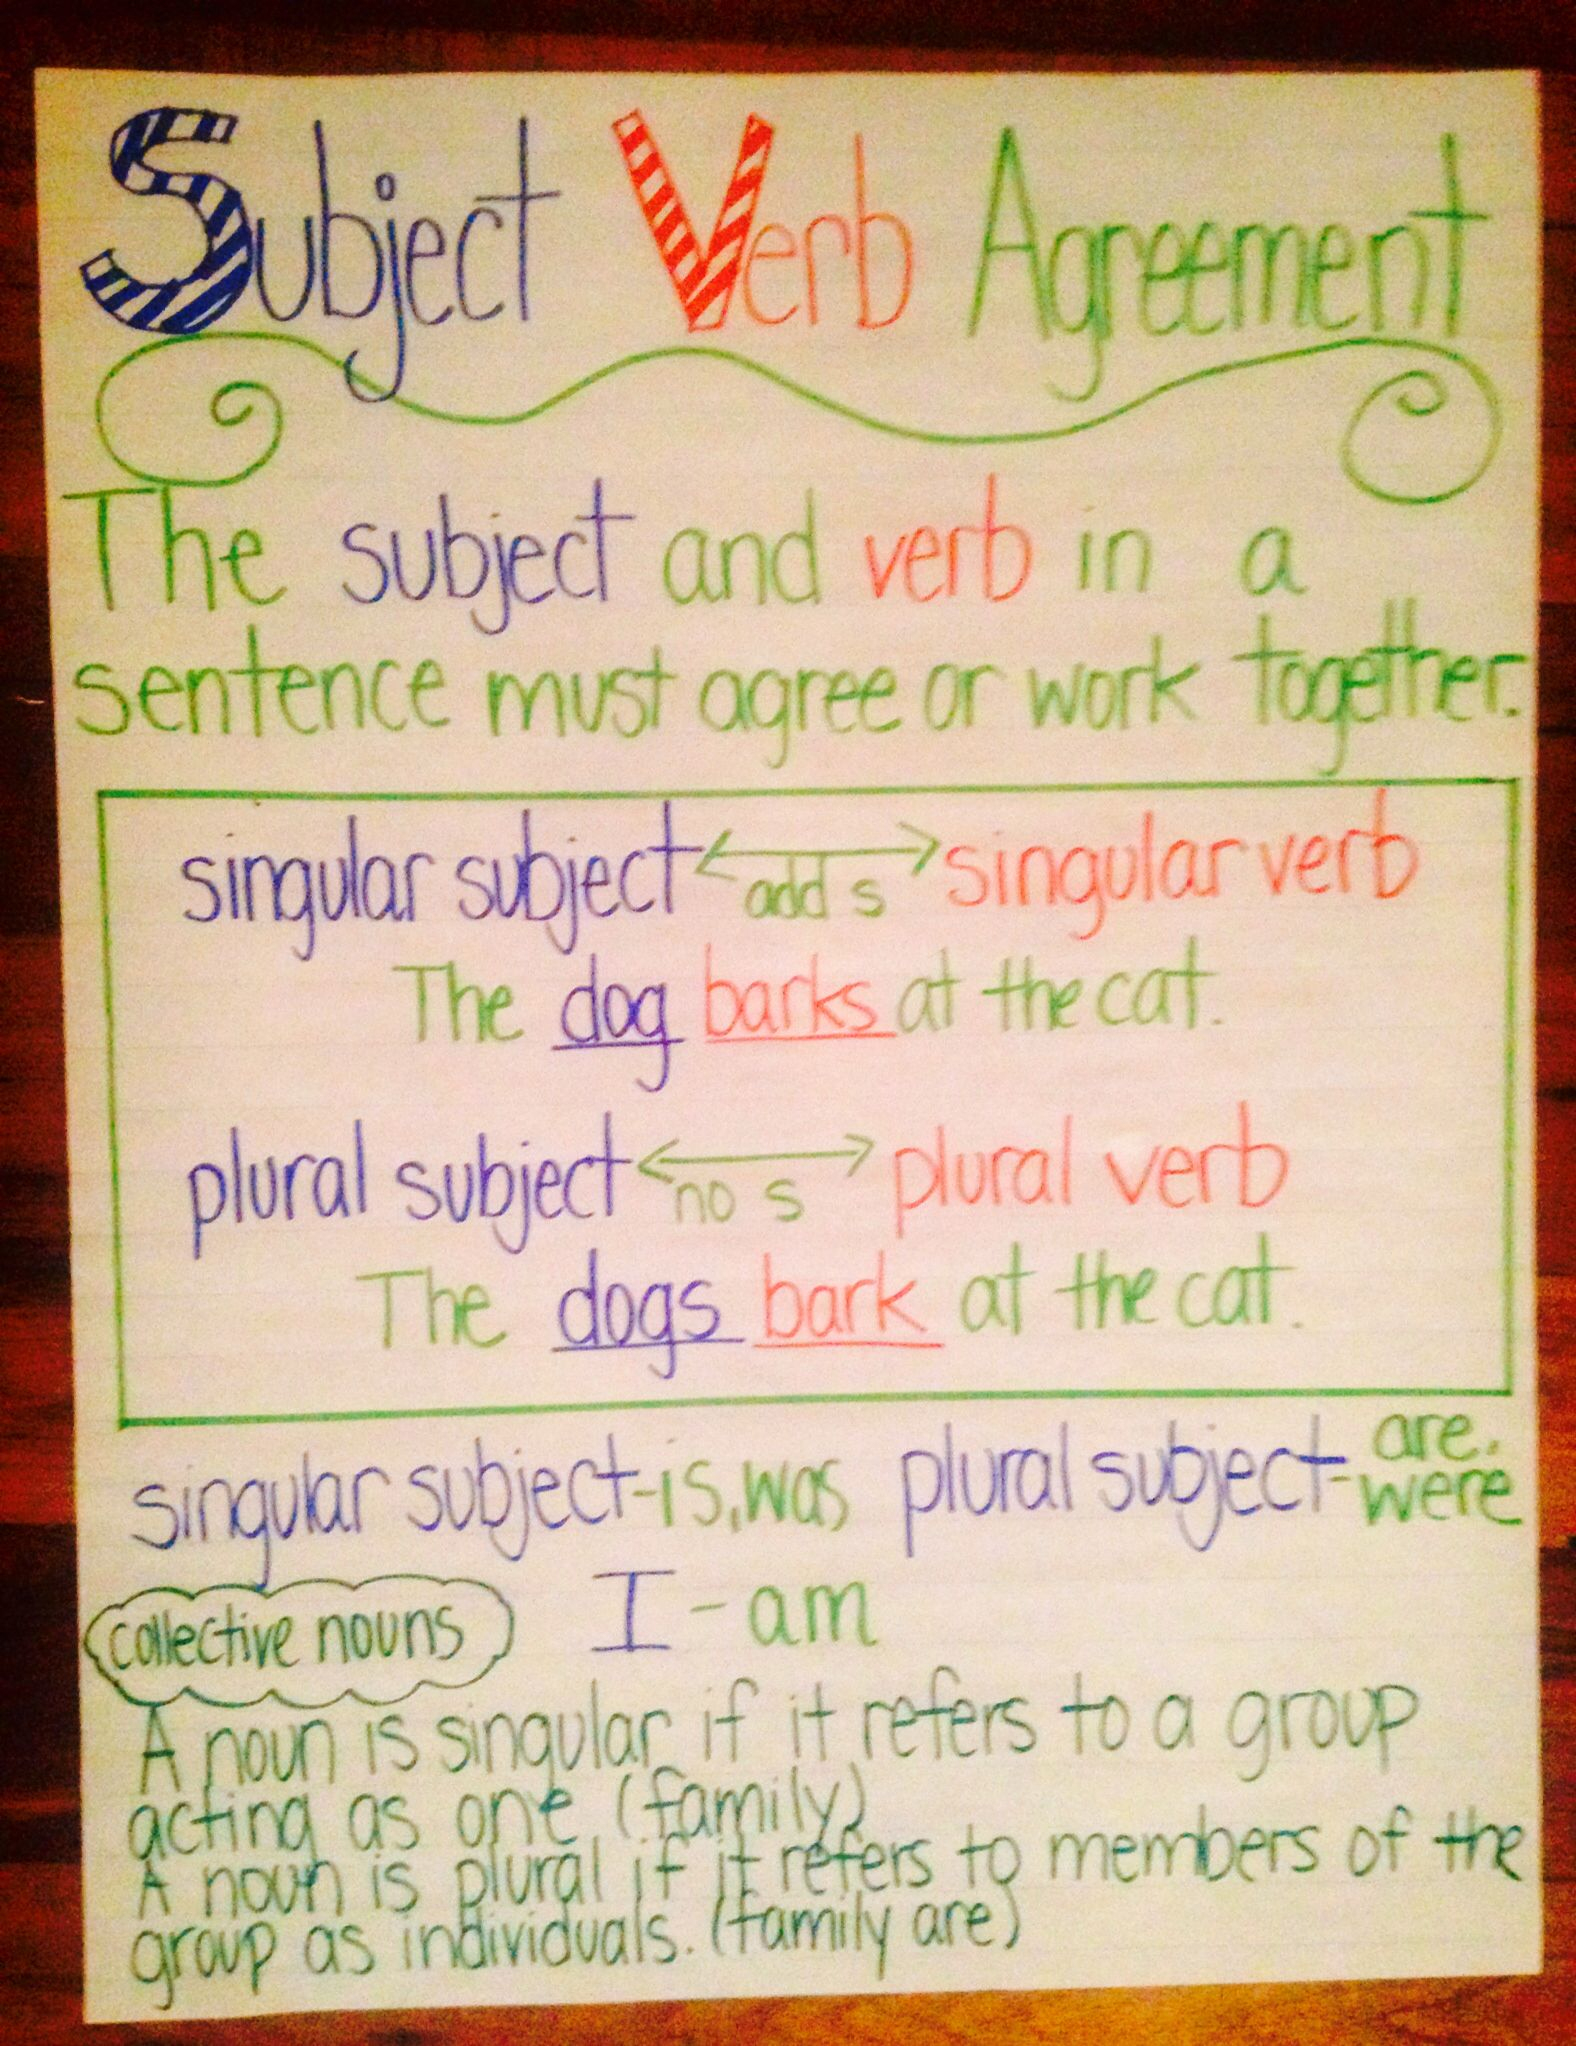 Subject Verb Agreement
The subject and verb in a
sentence must agree or work together.
singular subject add s singular verb
The dog barks at the cat.
plural subject no s plural verb
The dogs bark at the cat.
singular subject-is, was plural subject-are, were
collective nouns I - am
A noun is singular if it refers to a group
acting as one (family)
A noun is plural if it refers to members of the
group as individuals. (family are)